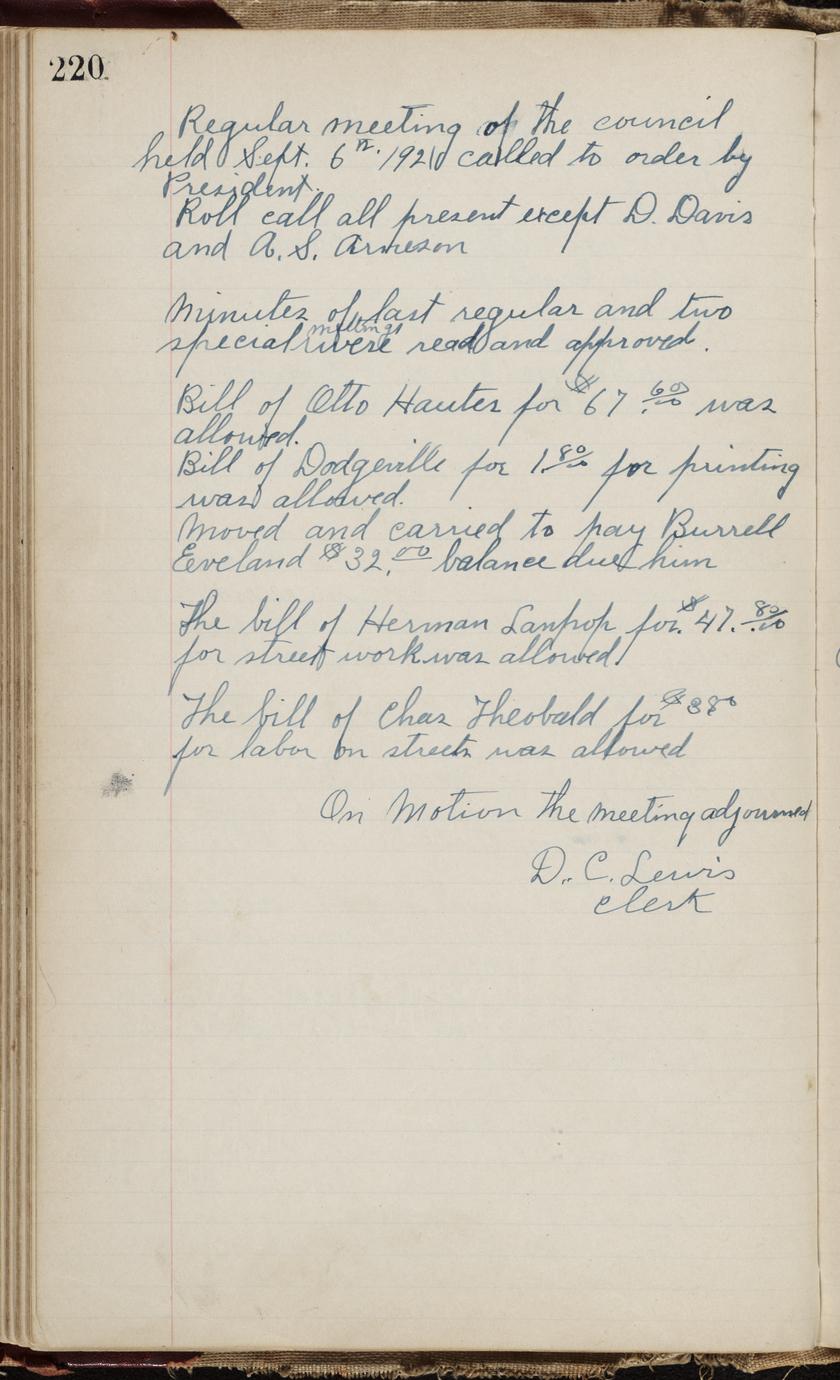 220
Regular meeting of the council
held Sept. 6th. 1921 called to order by
President.
Roll call all present except D. Davis
and A. S. Arneson
Minutes of last regular and two
meetings
special were read and approved.
Bill of Otto Hauter for $67.60/00 was
allowed.
Bill of Dodgeville for 1.80/00 for printing
was allowed.
Moved and carried to pay Burrell
Eveland $32.00 balance due him
The bill of Herman for $47.80/00
for street work was allowed
The bill of Chas Theobald for $380
for labor on streets was allowed
On Motion the meeting adjourned
D. C. Lewis
Clerk